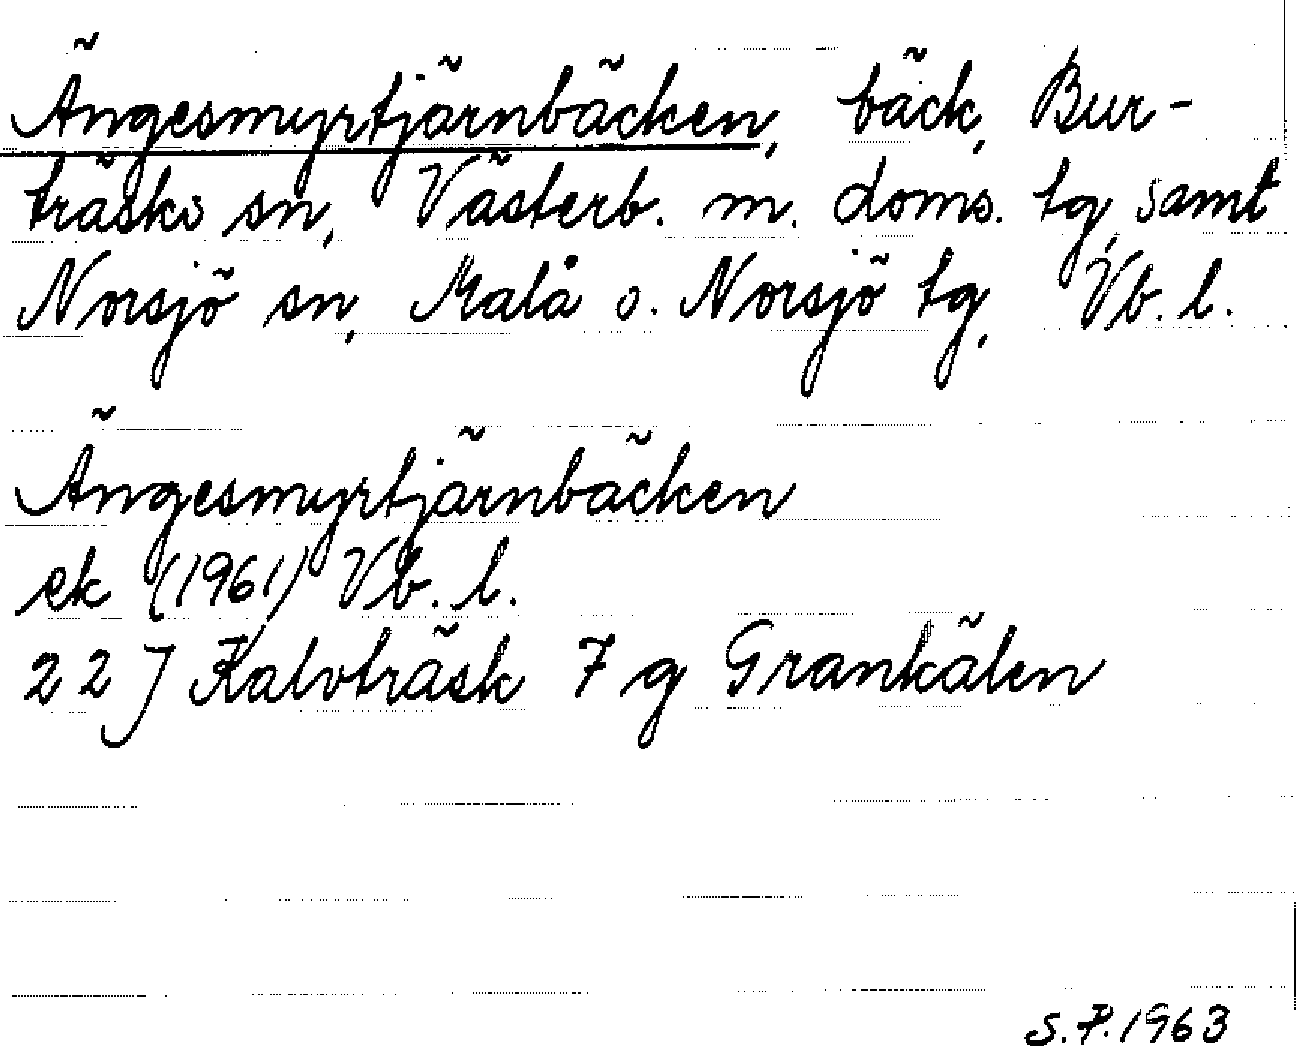 Ängesmyrtjärnbäcken, bäck, Bur-
träsks sn, Västerb. m. doms. tg, samt
Norsjö sn, Malå o. Norsjö tg, Vb. l.
Ängesmyrtjärnbäcken
ek (1961) Vb. l.
22 J Kalvträsk 7 g Grankälen
S.P. 1963